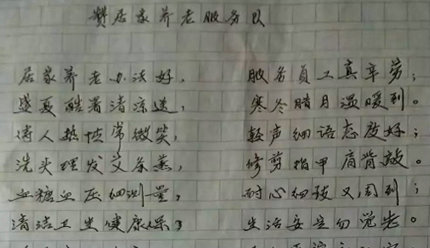 赞居家养老服务队
居家养老办法好, 服务员工真辛劳;
盛夏酷暑清凉送, 寒冬腊月温暖到。
待人热情常微笑, 轻声细语态度好;
洗头理发又条蓋, 修剪指甲肩背敲。
血糖血压细测量, 耐心细致又周到;
清洁卫生健康保, 生活安逸勿觉老。